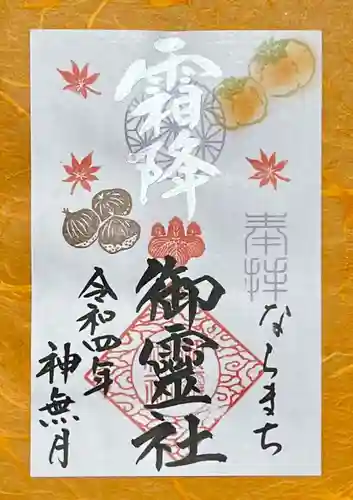 霜降
奉拝
ならまち
御靈社
令和四年
神無月